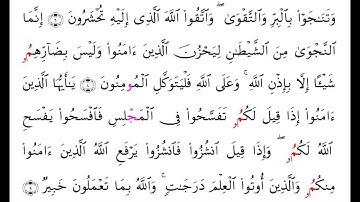 وَتَنَٰجَوۡاْ بِٱلۡبِرِّ وَٱلتَّقۡوَىٰۖ وَٱتَّقُواْ ٱللَّهَ ٱلَّذِيٓ إِلَيۡهِ تُحۡشَرُونَ ۝ إِنَّمَا
ٱلنَّجۡوَىٰ مِنَ ٱلشَّيۡطَٰنِ لِيَحۡزُنَ ٱلَّذِينَ ءَامَنُواْ وَلَيۡسَ بِضَآرِّهِمُۥ
شَيۡـًٔا إِلَّا بِإِذۡنِ ٱللَّهِۚ وَعَلَى ٱللَّهِ فَلۡيَتَوَكَّلِ ٱلۡمُومِنُونَ ۝ يَٰٓأَيُّهَا ٱلَّذِينَ
ءَامَنُوٓاْ إِذَا قِيلَ لَكُمُۥ تَفَسَّحُواْ فِي ٱلۡمَجۡلِسِ فَٱفۡسَحُواْ يَفۡسَحِ
ٱللَّهُ لَكُمُۥۖ وَإِذَا قِيلَ ٱنشُزُواْ فَٱنشُزُواْ يَرۡفَعِ ٱللَّهُ ٱلَّذِينَ ءَامَنُواْ
مِنكُمُۥ وَٱلَّذِينَ أُوتُواْ ٱلۡعِلۡمَ دَرَجَٰتٖۚ وَٱللَّهُ بِمَا تَعۡمَلُونَ خَبِيرٞ ۝